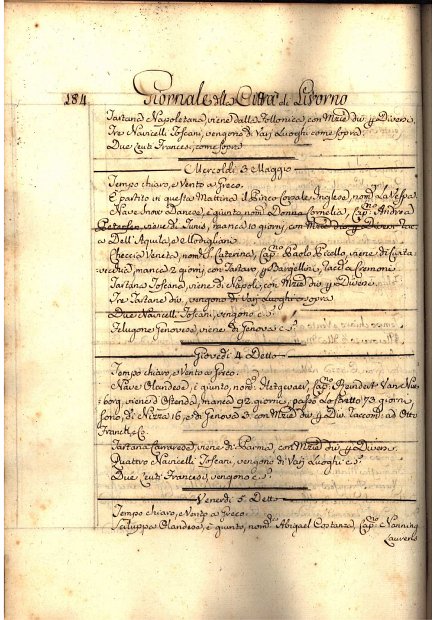 184 Giornale della Città di Livorno
Tartana Napoletana, viene dalla Follonica, con Mzie div. p Diversi
Tre Navicelli Toscani, vengono da Varj Luoghi come sopra
Due Leuti Francesi, come sopra
Mercoldì 3 Maggio
Tempo chiaro, e Vento a Greco.
È partito in questa Mattina il Pinco Corsale Inglese, nom.o La Vespa
Nave Snow Danese, è giunto, nom.a Donna Cornelia, Cap.no Andrea
Petersen, viene di Tunis, manca 10 giorni, con Mzie div. p Diversi
a Dell'Aquila, e Modigliani
Checcia Veneta, nom. S. Caterina, Cap.no Paolo Picello, viene di Civita
vecchia, manca 2 giorni, con Tartaro p Bargellini, Racc.a Cremoni
Tartana Toscana, viene di Napoli, con Mzie div. p Diversi
Tre Tartane div., vengono di Varj Luoghi c. sopra
Due Navicelli Toscani, vengono c. s.a
Filugone Genovese, viene di Genova c. s.a
Giovedì 4 Detto
Tempo chiaro, e Vento a Greco.
Nave Olandese, è giunto, nom.
Cap.no
viene d'Ostenda, manca 92 giorni, passò Lo Stretto 73 giorni
sono, di Nizza 16, e di Genova 3. con Mzie div. p Div. raccom. ad Otto
Franck, e Co.
Tartana Carrarese, viene di Parma, con Mzie div. p Diversi
Quattro Navicelli Toscani, vengono da Varj Luoghi c. s.a
Due Leuti Francesi, vengono c. s.a
Venerdì 5 Detto
Tempo chiaro, e Vento a Greco.
Galuppa Olandese, è giunto, nom. Abigael Costanza, Cap.no Nanning
Laurens